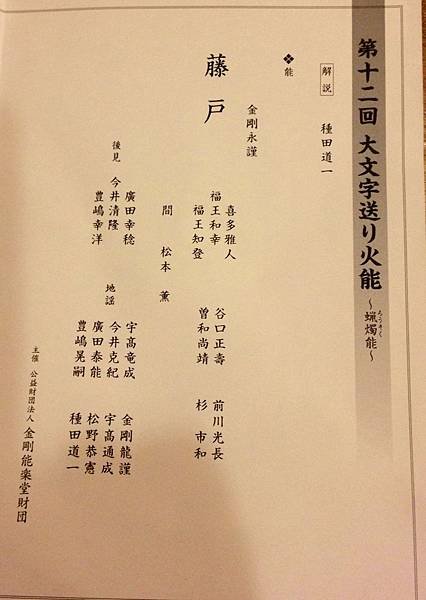 第十二回 大文字送り火能
~蝋燭能~
ろうそく
解説 種田道一
❖能
藤戸
金剛永謹
喜多雅人
福王和幸
福王知登
間 松本 薫
谷口正壽
曽和尚靖
前川光長
杉 市和
後見
廣田幸稔
今井清隆
豊嶋幸洋
地謡
宇髙竜成
今井克紀
廣田泰能
豊嶋晃嗣
金剛龍謹
宇髙通成
松野恭憲
種田道一
主催 公益財団法人 金剛能楽堂財団